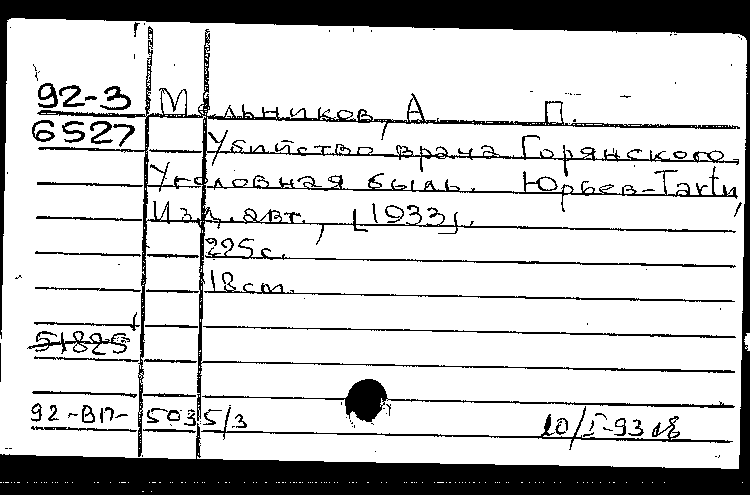 92-3 Мельников, А. П.
6527 Убийство врача Горянского.
Уголовная быль. Юрьев-Tartu,
Изд. авт., [1933].
225 с.
18 cm.
51825
92-ВП-5035/3 10/I-93